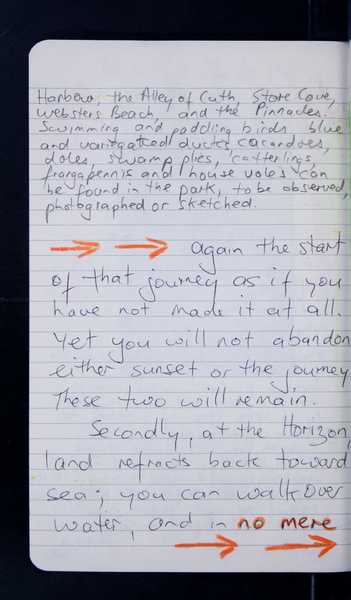 Harbour, the Alley of Cath, Store Cove,
Websters Beach, and the Pinnacles.
Swimming and paddling birds, blue
and variegated ducks, cacandoes,
doles, swamp plies, catterlings,
frangapennis and house voles can
be found in the park, to be observed,
photographed or sketched.
again the start
of that journey as if you
have not made it at all.
Yet you will not abandon
either sunset or the journey
These two will remain.
Secondly, at the Horizon,
land refracts back toward
sea; you can walk over
water, and in no mere